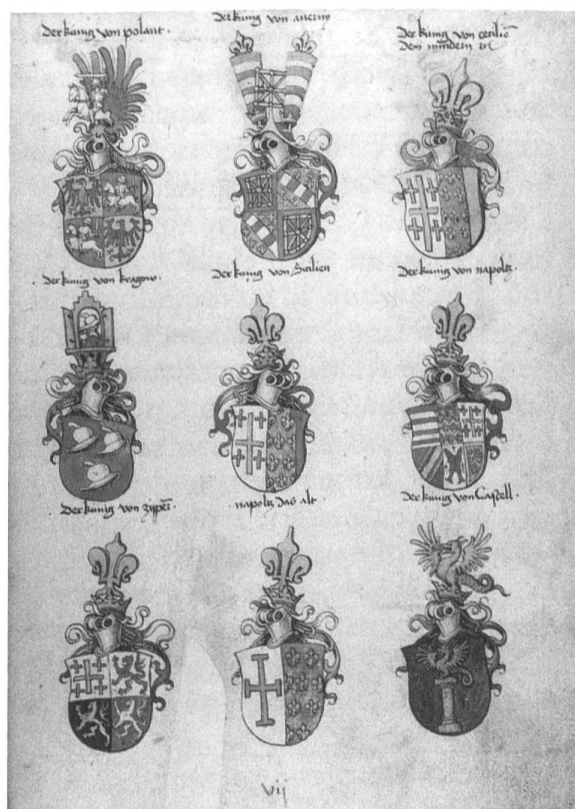 Der kunig von polant.
Der kunig von
Der kunig von cecilie
Dem mindern
Der kunig von kragow.
Der kunig von Sicilien
Der kunig von napolz.
Der kunig von zipper.
napolz das alt.
Der kunig von Castell.
vij